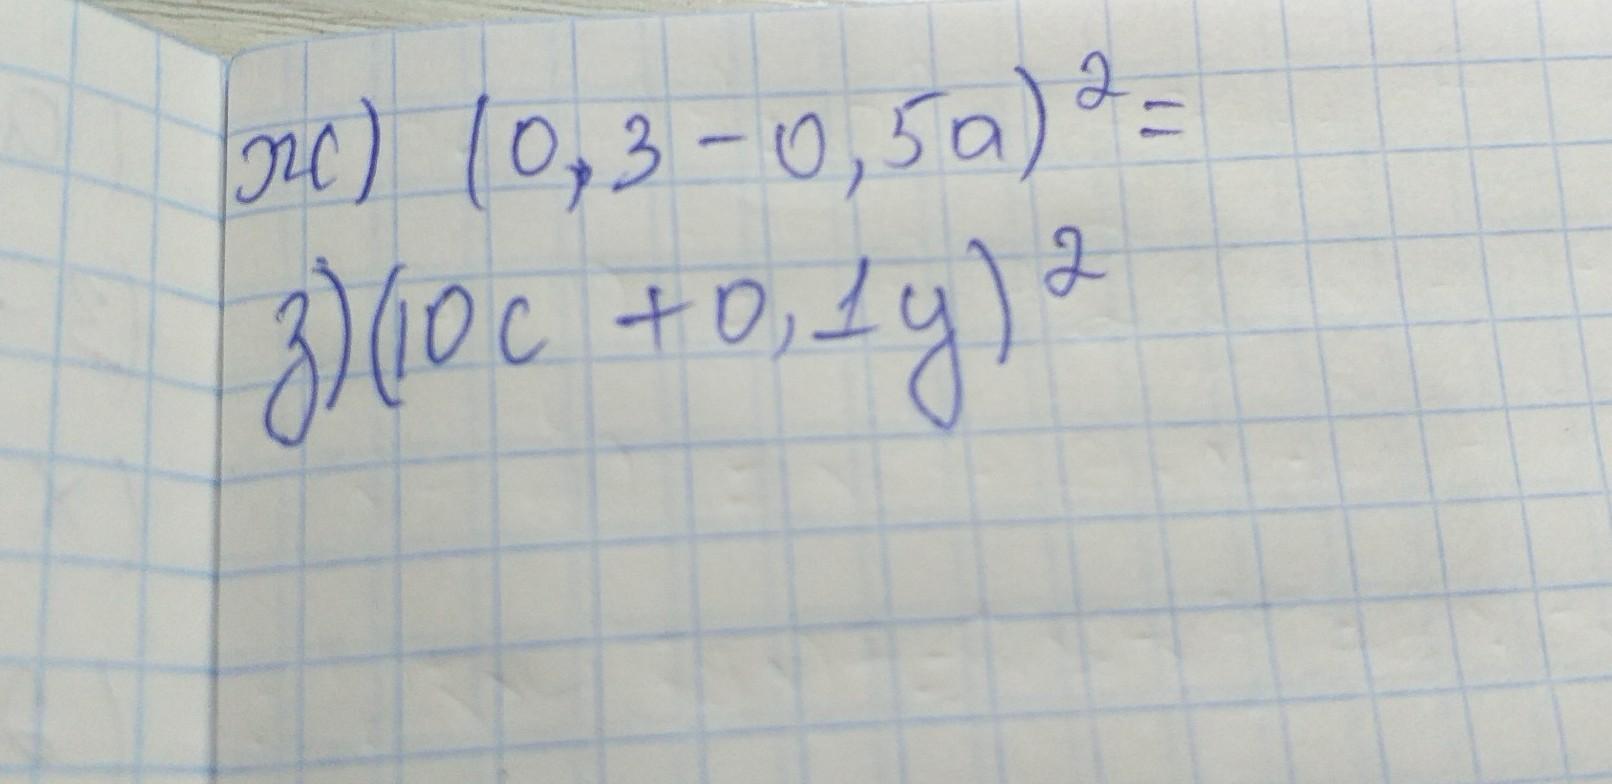 ж) (0,3-0,5a)²=
з)(10c+0,1y)²